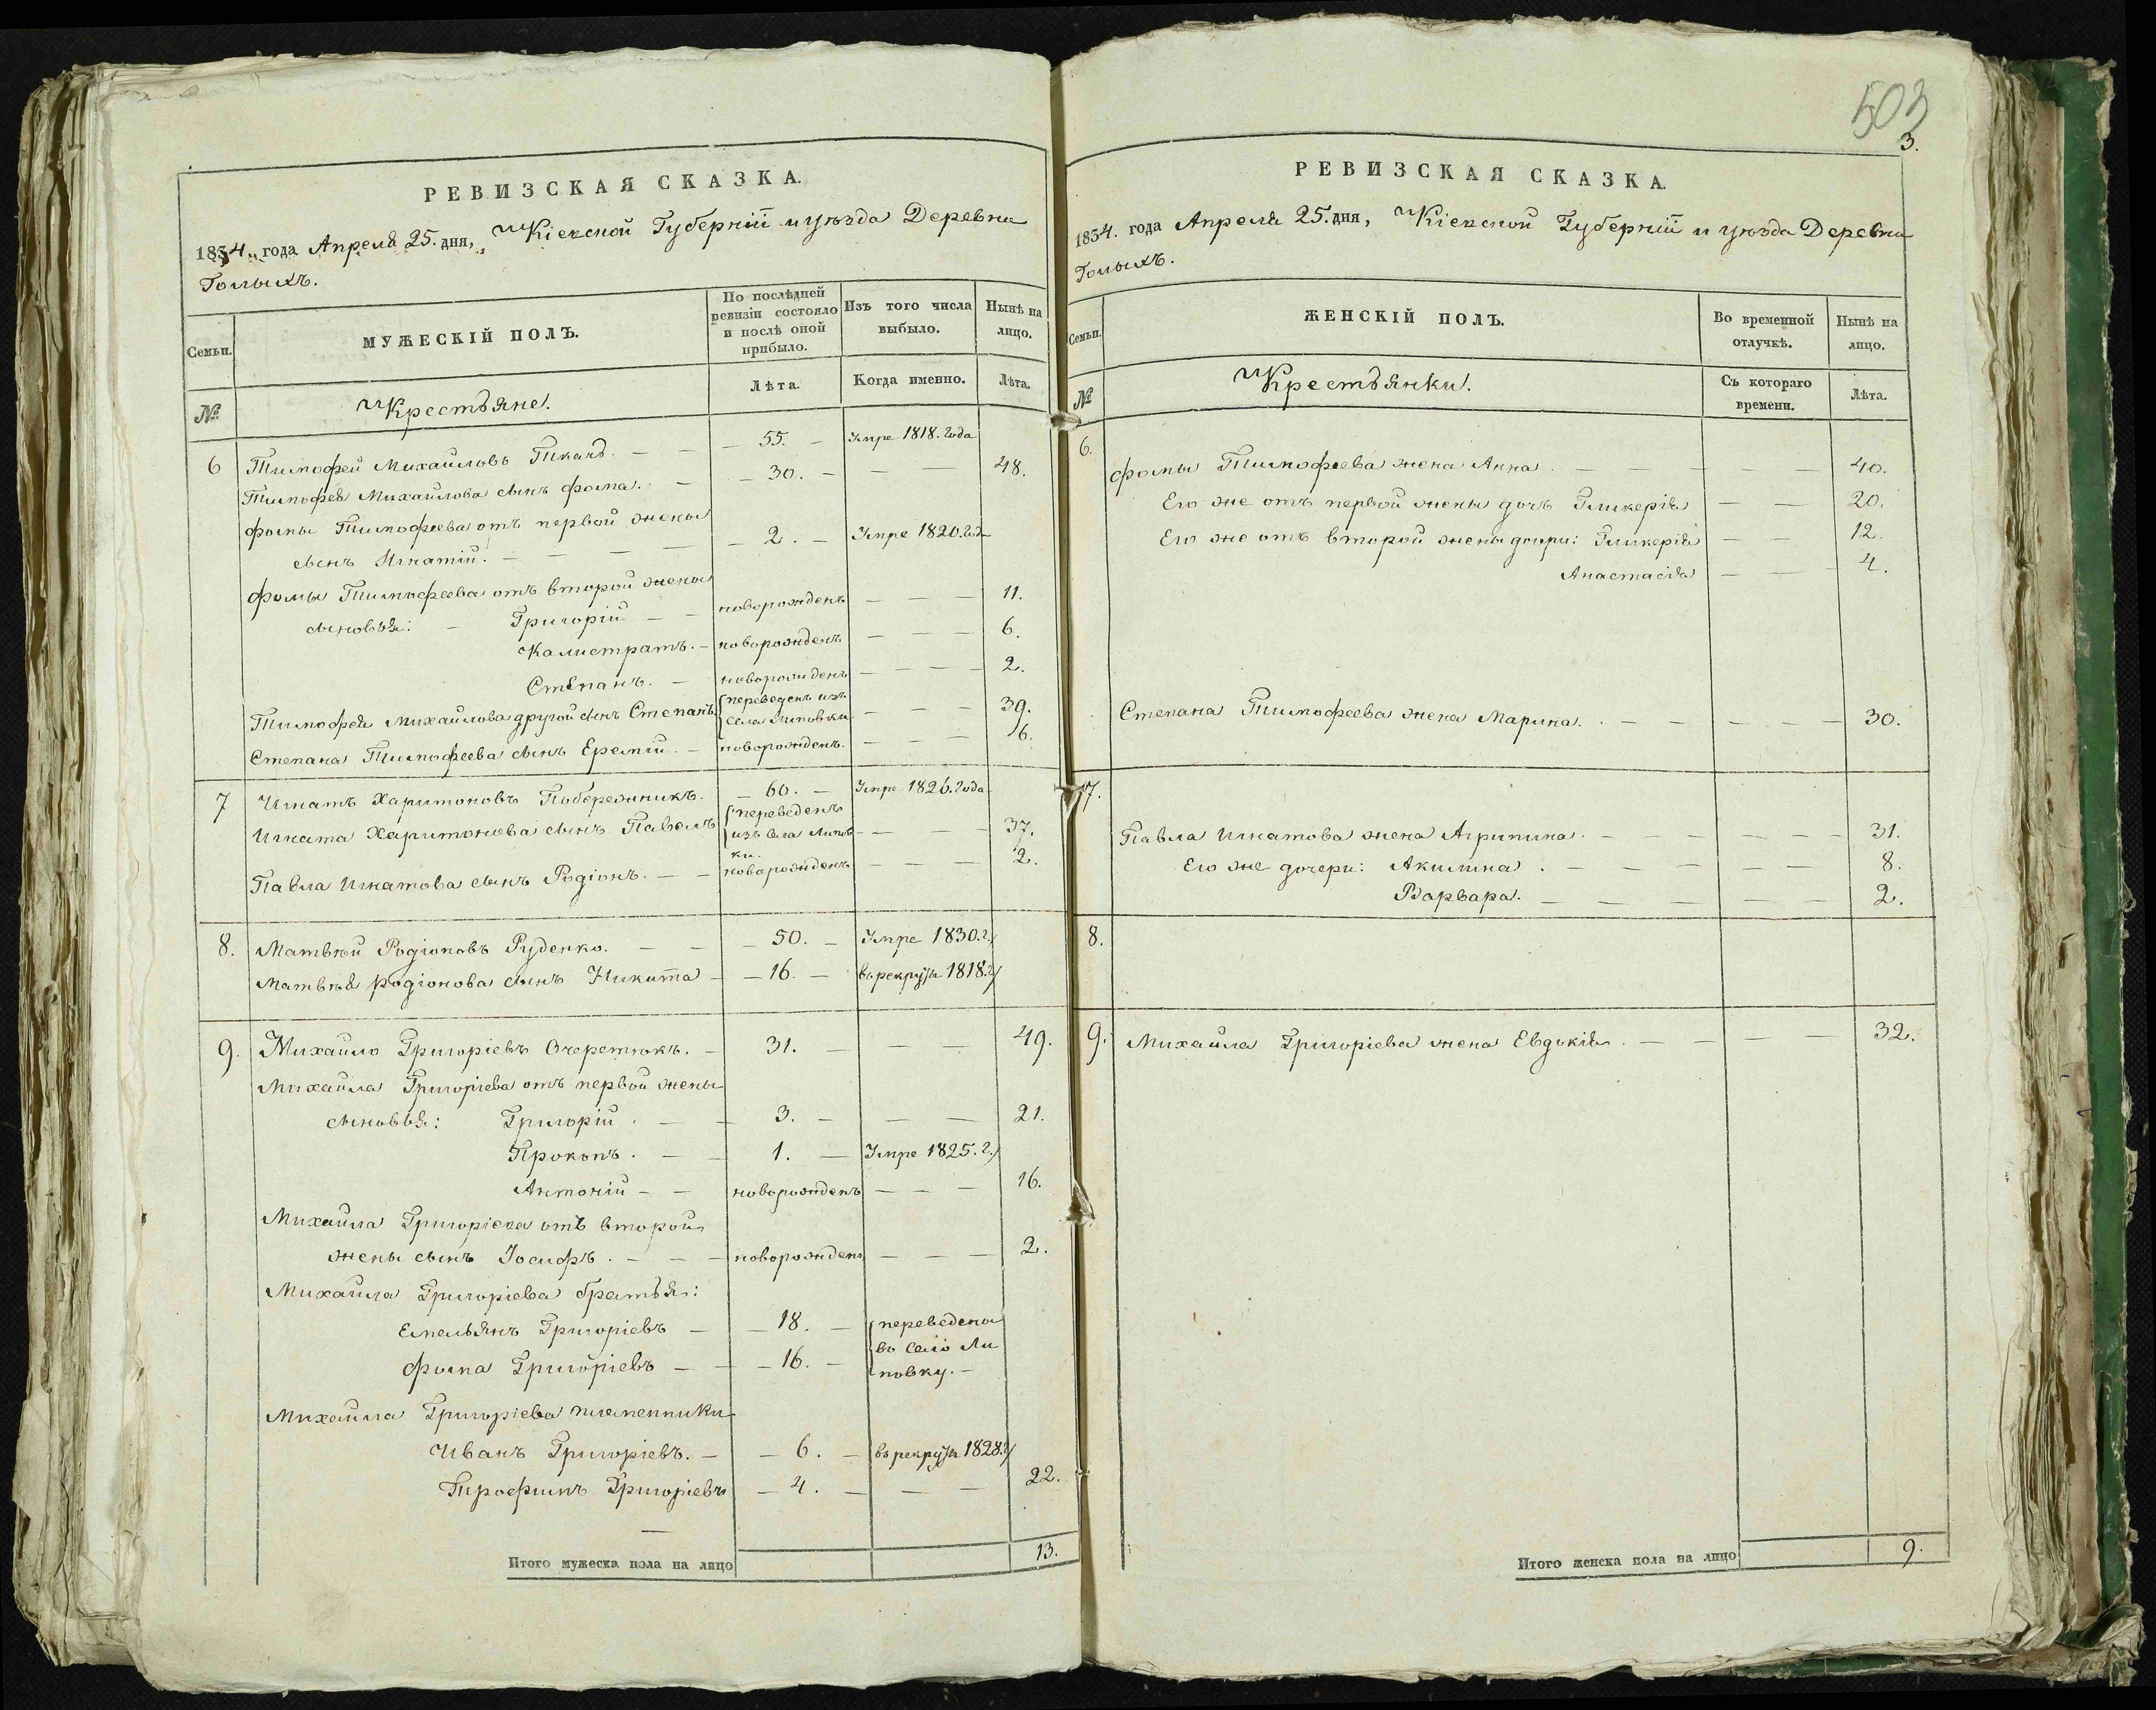 РЕВИЗСКАЯ СКАЗКА.
1834. года Апреля 25. дня, Кіевской Губерніи и уѣзда Деревни
Голыхъ.
Семьи.
МУЖЕСКІЙ ПОЛЪ.
По послѣдней ревизіи состояло и послѣ оной прибыло.
Изъ того числа выбыло.
Нынѣ на лицо.
№
Крестьяне.
Лѣта.
Когда именно.
Лѣта.
6 Тимофей Михайловъ Ткачъ. — 55. — Умре 1818. года
Тимофея Михайлова сынъ Фома. — 30. — — 48.
Фомы Тимофеева отъ первой жены
сынъ Игнатій. — 2. — Умре 1820. года
Фомы Тимофеева отъ второй жены
сыновья: — Григорій — новорожденъ — 11.
Калистратъ. — новорожденъ — 6.
Степанъ. — новорожденъ — 2.
Тимофея Михайлова другой сынъ Степанъ переведенъ изъ села Липовки — 39.
Степана Тимофеева сынъ Еремій. — новорожденъ. — 6.
7 Игнатъ Харитоновъ Побережникъ. — 60. — Умре 1826. года
Игната Харитонова сынъ Павелъ переведенъ изъ села Липовки. — 37.
Павла Игнатова сынъ Родіонъ. — новорожденъ — 2.
8. Матвѣй Родіоновъ Руденко. — 50. — Умре 1830. г.
Матвѣя Родіонова сынъ Никита — 16. — въ рекруты 1818. г.
9. Михайло Григоріевъ Очеретюкъ. — 31. — 49.
Михайла Григоріева отъ первой жены
сыновья: Григорій. — 3. — 21.
Прокопъ. — 1. — Умре 1825. г.
Антоній — новорожденъ — 16.
Михайла Григоріева отъ второй
жены сынъ Іосифъ. — новорожденъ — 2.
Михайла Григоріева братья:
Емельянъ Григоріевъ — 18. — переведены
въ село Ли
Фома Григоріевъ — 16. — повку. —
Михайла Григоріева племенники
Иванъ Григоріевъ. — 6. — въ рекруты 1828. г.
Трофимъ Григоріевъ — 4. — 22.
Итого мужеска пола на лицо 13.
503
3.
РЕВИЗСКАЯ СКАЗКА.
1834. года Апреля 25. дня, Кіевской Губерніи и уѣзда Деревни
Голыхъ.
Семьи.
ЖЕНСКІЙ ПОЛЪ.
Во временной отлучкѣ.
Нынѣ на лицо.
№
Крестьянки.
Съ котораго времени.
Лѣта.
6.
Фомы Тимофеева жена Анна. — 40.
Его же отъ первой жены дочь Гликерія — 20.
Его же отъ второй жены дочери: Гликерія — 12.
Анастасія — 4.
Степана Тимофеева жена Марина. — 30.
7.
Павла Игнатова жена Агрипина. — 31.
Его же дочери: Акилина. — 8.
Варвара. — 2.
8.
9. Михайла Григоріева жена Евдокія. — 32.
Итого женска пола на лицо 9.